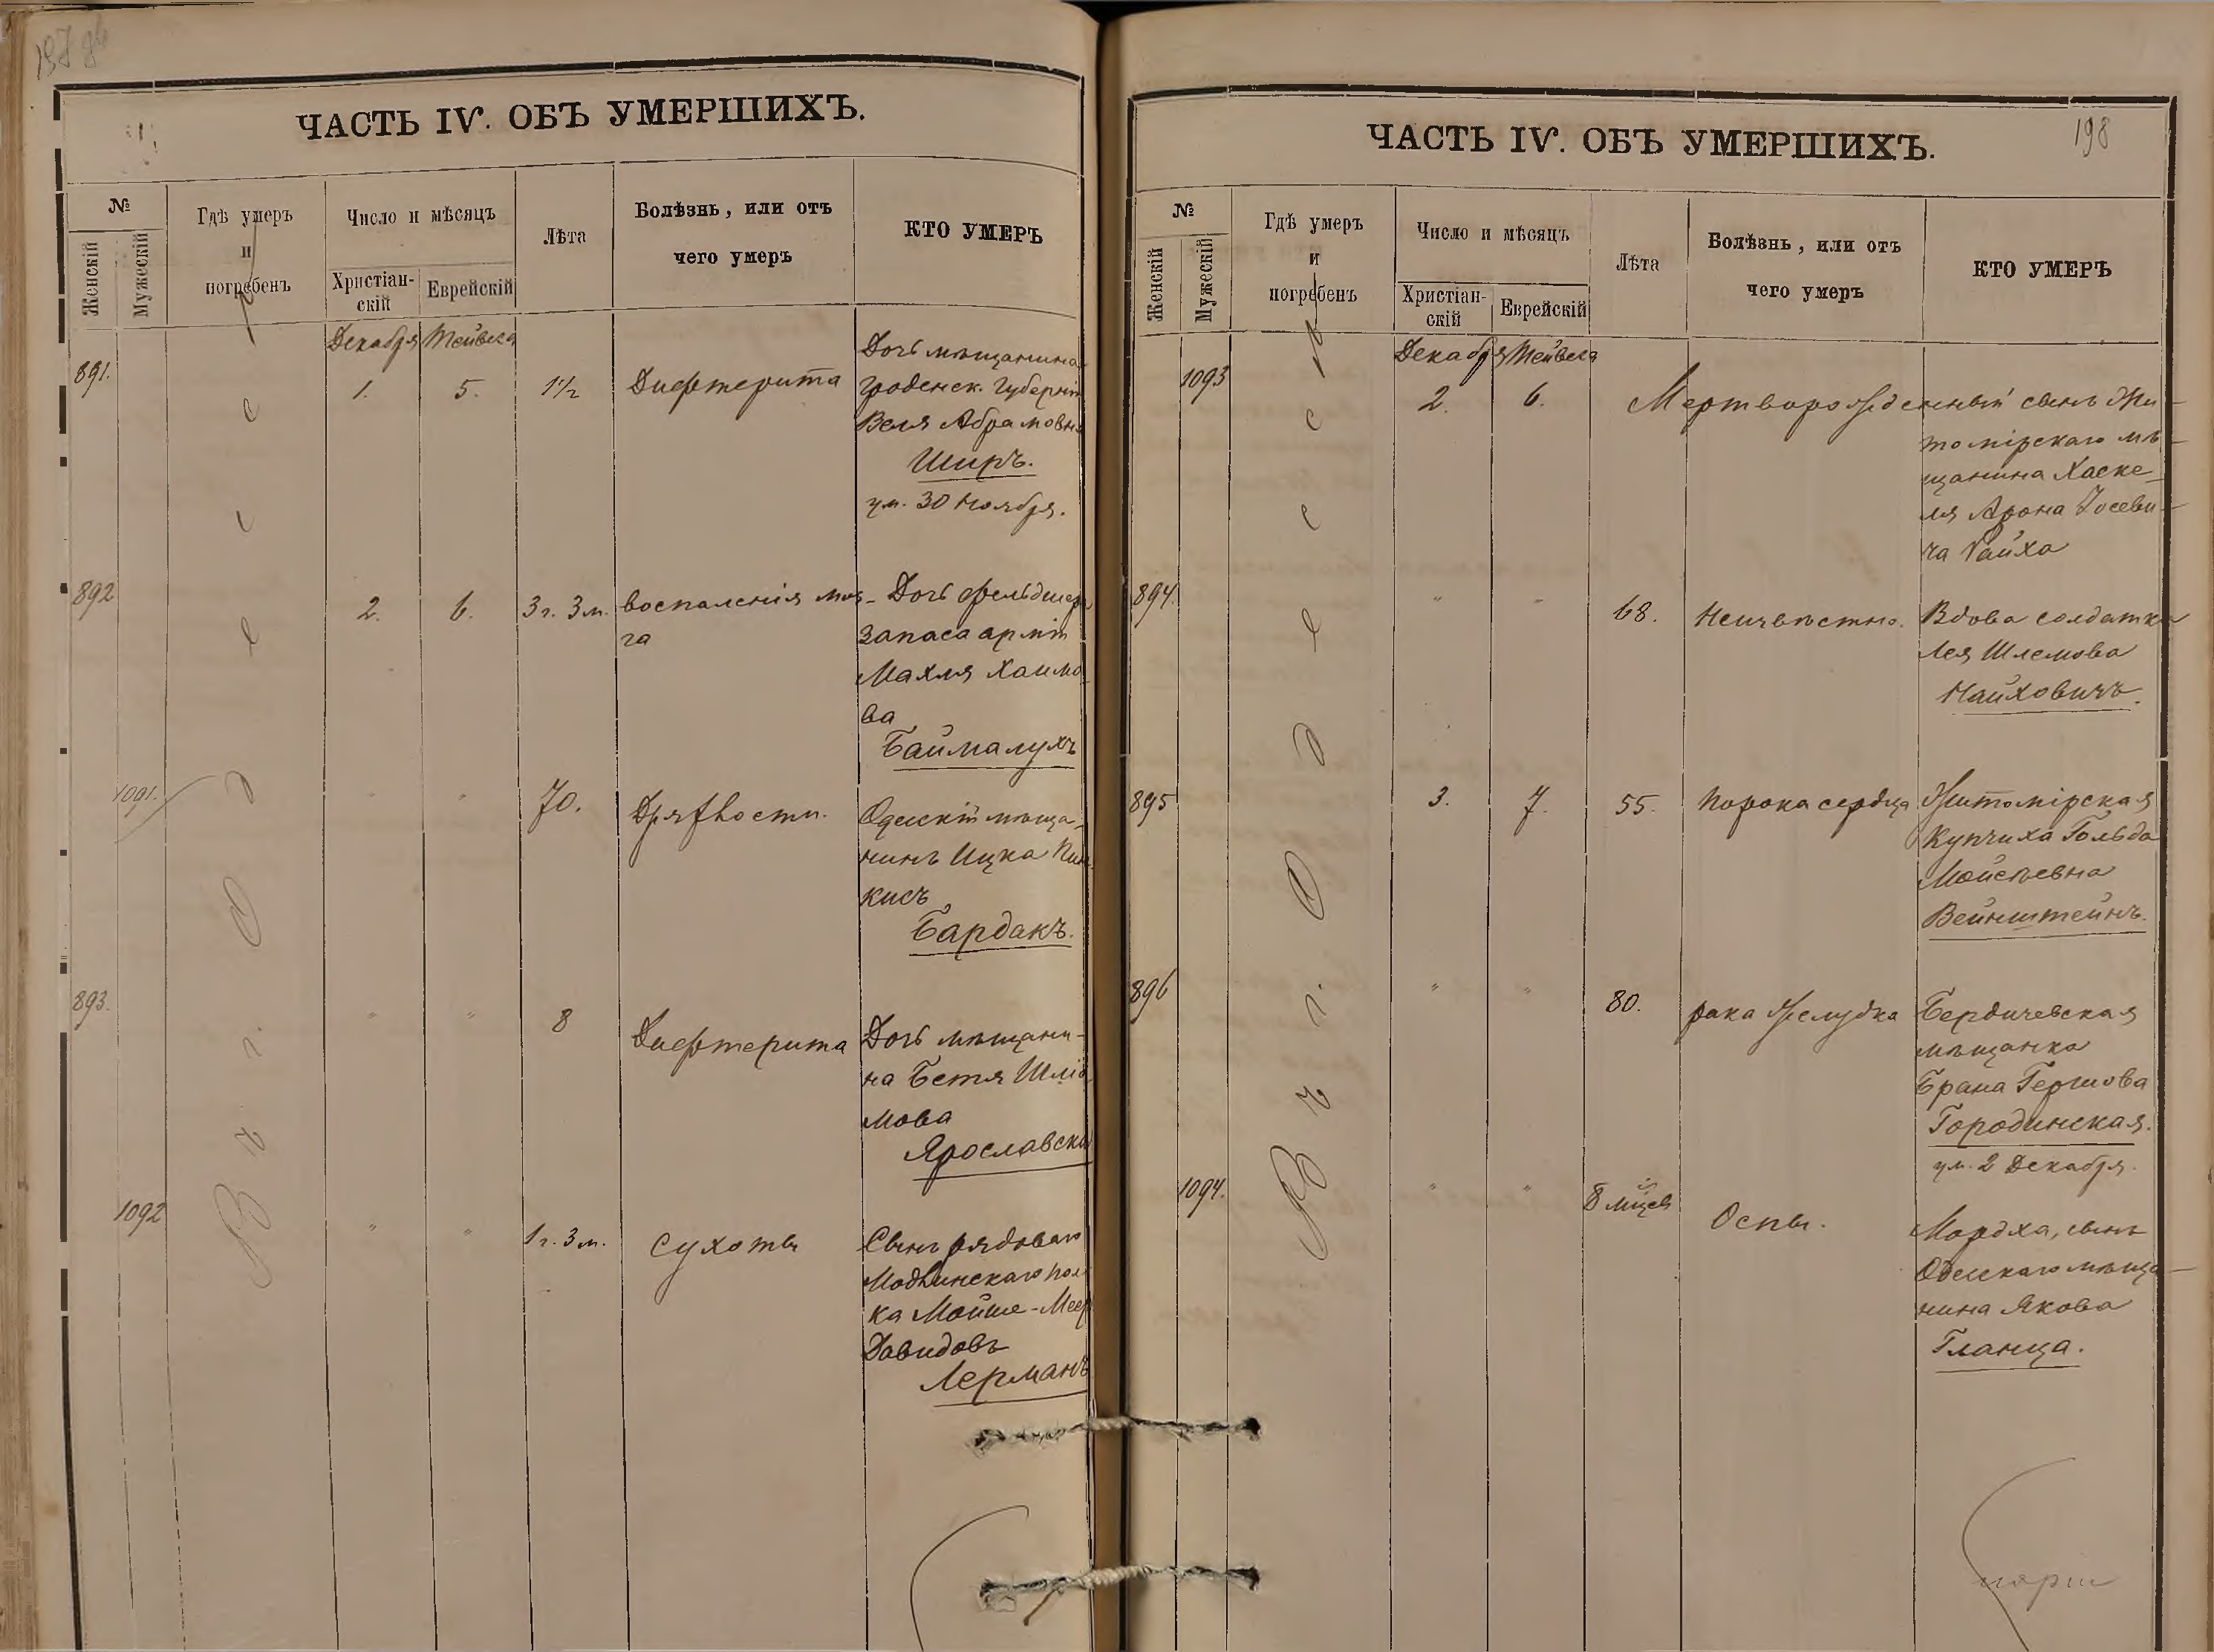 ЧАСТЬ IV. ОБЪ УМЕРШИХЪ.
№
Женскій
Мужескій
Гдѣ умеръ
и
погребенъ
Число и мѣсяцъ
Христіан-
скій
Еврейскій
Лѣта
Болѣзнь, или отъ
чего умеръ
КТО УМЕРЪ
Въ г. Одессѣ
Декабря Тейвеса
891. 1. 5. 1 1/2 Дифтерита
Дочь мѣщанина
Гроденск. губерніи
Веля Абрамовна
Ширъ.
ум. 30 Ноября.
892 2. 6. 3 г. 3 м. воспаленія моз-
га
Дочь фельдшера
запаса арміи
Махля Хаимо-
ва
Баймалухъ
1091. " " 70. Дряхлости.
Одесскій мѣща-
нинъ Ицка Пин-
кисъ
Бардакъ.
893. " " 8 Дифтерита
Дочь мѣщани-
на Бетя Шлiо-
мова
Ярославски
1092 " " 1 г. 3 м. Сухоты
Сынъ рядоваго
Модлинскаго пол-
ка Мойше-Меер
Давидовъ
Лерманъ
198
ЧАСТЬ IV. ОБЪ УМЕРШИХЪ.
№
Женскій
Мужескій
Гдѣ умеръ
и
погребенъ
Число и мѣсяцъ
Христіан-
скій
Еврейскій
Лѣта
Болѣзнь, или отъ
чего умеръ
КТО УМЕРЪ
Въ г. Одессѣ
Декабря Тейвеса
1093 2. 6. Мертворожденный сынъ Жи-
томірскаго мѣ-
щанина Хаске-
ля Арона Іосеви-
ча Райха
894. " " 68. Неизвѣстно.
Вдова солдатка
Лея Шлемова
Найховичъ.
895 3. 7. 55. Порока сердца
Житомірская
Купчиха Гольда
Мойсѣевна
Вейнштейнъ.
896 " " 80. рака желудка
Бердичевская
мѣщанка
Брана Гершова
Городинская.
ум. 2 Декабря.
1094. " " 8 мцев Оспы.
Мордха, сынъ
Одесскаго мѣща-
нина Якова
Гланца.